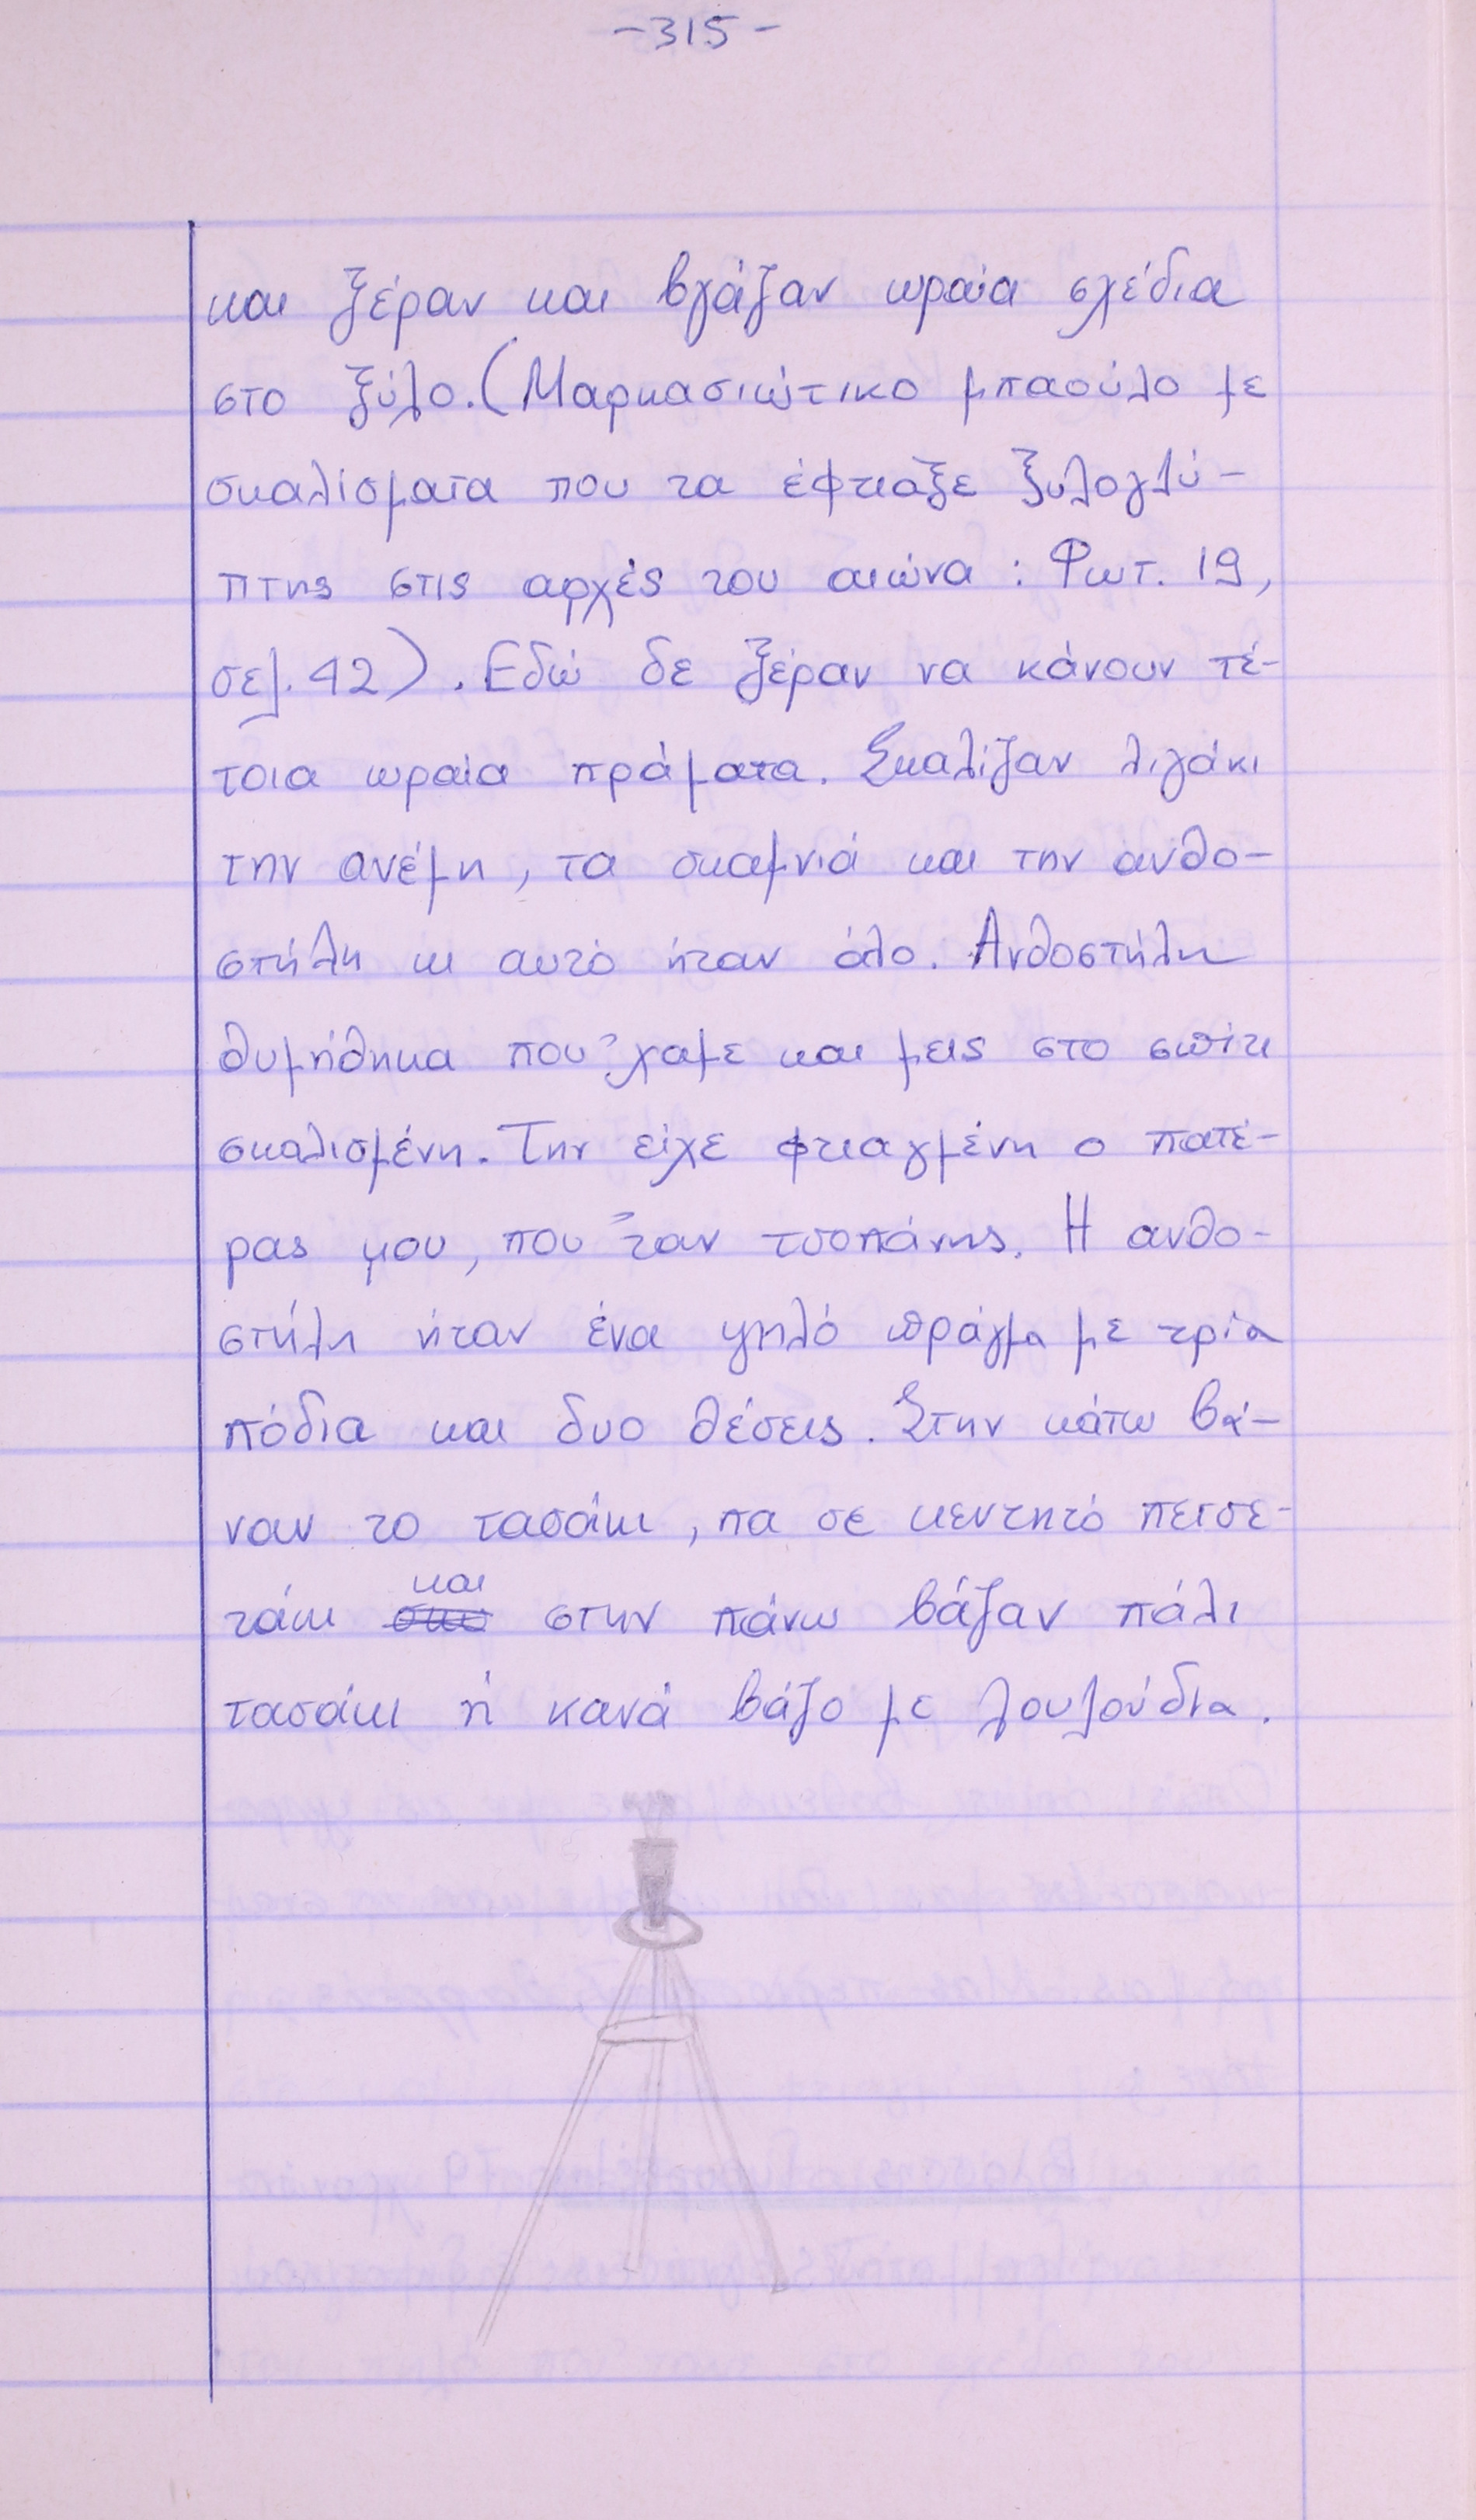 -315-
και ξέραν και βγάζαν ωραία σχέδια
στο ξύλο. (Μαρκασιώτικο μπαούλο με
σκαλίσματα που τα έφτιαξε ξυλογλύ-
πτης στις αρχές του αιώνα : Φωτ. 19,
σελ. 42). Εδώ δε ξέραν να κάνουν τέ-
τοια ωραία πράματα. Σκαλίζαν λιγάκι
την ανέμη, τα σκαμνιά και την ανθο-
στήλη κι αυτό ήταν όλο. Ανθοστήλη
θυμήθηκα που 'χαμε και μεις στο σπίτι
σκαλισμένη. Την είχε φτιαγμένη ο πατέ-
ρας μου, που 'ταν τσοπάνης. Η ανθο-
στήλη ήταν ένα ψηλό πράγμα με τρία
πόδια και δυο θέσεις. Στην κάτω βά-
ναν το τασάκι, πα σε κεντητό πετσε-
τάκι και στην πάνω βάζαν πάλι
τασάκι ή κανά βάζο με λουλούδια.